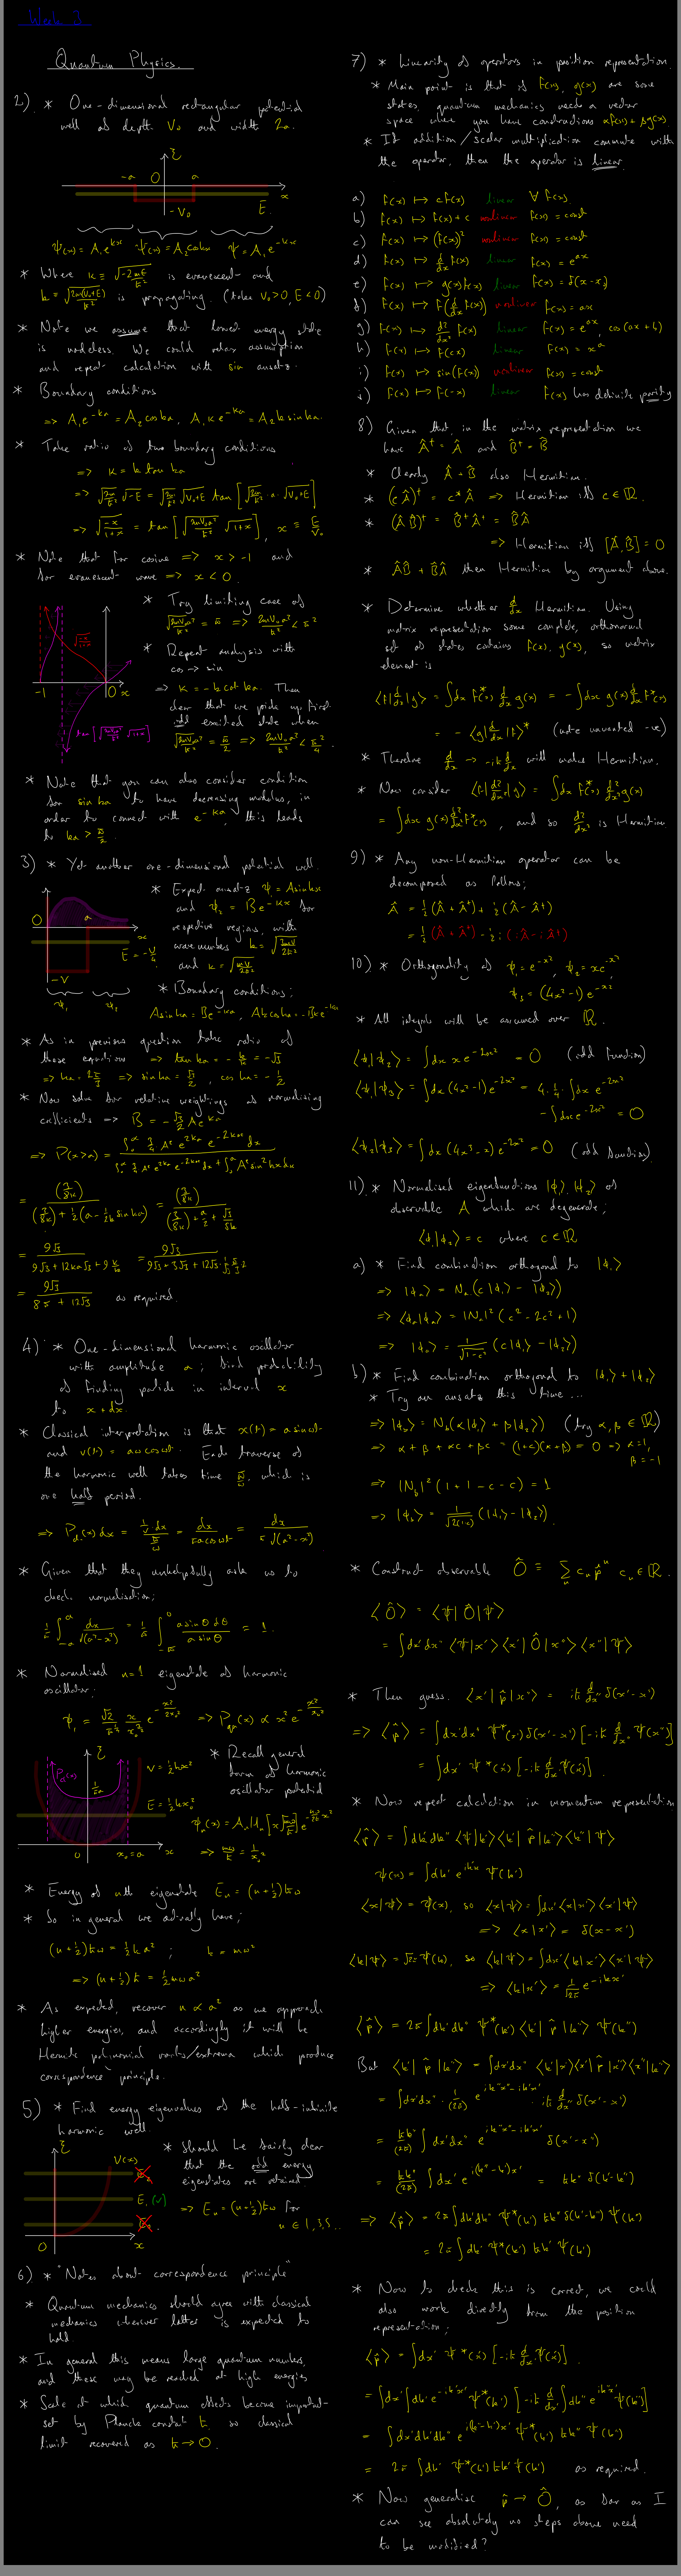 Week 3
Quantum Physics.
2) * One-dimensional rectangular potential
well of depth V₀ and width 2a.
-a 0 a x
-V₀ E
ψ(x) = A₁e^{κx} ψ(x) = A₂cos kx ψ = A₁e^{-κx}
* Where κ ≡ √(-2mE/ħ²) is evanescent and
k = √(2m(V₀+E)/ħ²) is propagating. (take V₀>0, E<0)
* Note we assume that lowest energy state
is nodeless. We could relax assumption
and repeat calculation with sin ansatz.
* Boundary conditions
⇒ A₁e^{-κa} = A₂cos ka, A₁κe^{-κa} = A₂k sin ka.
* Take ratio of two boundary conditions
⇒ κ = k tan ka
⇒ √(2m/ħ²) √-E = √(2m/ħ²) √(V₀+E) tan[√(2m/ħ²) · a · √(V₀+E)]
⇒ √(-x/(1+x)) = tan[√(2mV₀a²/ħ²) √(1+x)], x ≡ E/V₀
* Note that for cosine ⇒ x > -1 and
for evanescent wave ⇒ x < 0.
* Try limiting case of
√(2mV₀a²/ħ²) = π ⇒ 2mV₀a²/ħ² < π²
* Repeat analysis with
cos → sin
⇒ κ = -k cot ka. Then
clear that we pick up first
odd excited state when
√(2mV₀a²/ħ²) = π/2 ⇒ 2mV₀a²/ħ² < π²/4.
-1 0 x
* Note that you can also consider condition
for sin ka to have decreasing modulus, in
order to connect with e^{-κa}, this leads
to ka > π/2.
3) * Yet another one-dimensional potential well.
* Expect ansatz ψ₁ = A sin kx
and ψ₂ = Be^{-κx} for
respective regions, with
wavenumbers k = √(3mV/2ħ²)
and κ = √(mV/2ħ²)
0 a x
E = -V/4
-V
ψ₁ ψ₂
* Boundary conditions;
A sin ka = Be^{-κa}, Ak cos ka = -Bκe^{-κa}
* As in previous question take ratio of
these equations ⇒ tan ka = -k/κ = -√3
⇒ ka = 2π/3 ⇒ sin ka = √3/2, cos ka = -1/2
* Now solve for relative weightings of normalising
coefficients ⇒ B = -√3/2 Ae^{κa}
= 9√3 / (8π + 12√3) as required.
4) * One-dimensional harmonic oscillator
with amplitude a; find probability
of finding particle in interval x
to x + dx.
* Classical interpretation is that x(t) = a sin ωt
and v(t) = aω cos ωt. Each traverse of
the harmonic well takes time π/ω, which is
one half period.
⇒ P_cl(x)dx = (1/v · dx)/(π/ω) = dx/(πa cos ωt) = dx/(π√(a²-x²))
* Given that they unhelpfully ask us to
check normalisation;
1/π ∫_{-a}^{a} dx/√(a²-x²) = 1/π ∫_{-π}^{0} a sin θ dθ/(a sin θ) = 1.
* Normalised n=1 eigenstate of harmonic
oscillator.
V = ½kx²
E = ½kx₀²
0 x₀=a x
* Recall general
form of harmonic
oscillator potential
* Energy of nth eigenstate Eₙ = (n+½)ħω
* So in general we actually have;
(n+½)ħω = ½ka²; k = mω²
⇒ (n+½)ħ = ½mωa²
* As expected, recover n ∝ a² as we approach
higher energies, and accordingly it will be
Hermite polynomial roots/extrema which produce
correspondence principle.
5) * Find energy eigenvalues of the half-infinite
harmonic well.
V(x)
0 x
* Should be fairly clear
that the odd energy
eigenstates are retained
⇒ Eₙ = (n+½)ħω for
n ∈ 1,3,5...
6) * "Notes about correspondence principle"
* Quantum mechanics should agree with classical
mechanics wherever latter is expected to
hold.
* In general this means large quantum numbers,
and these may be reached at high energies
* Scale at which quantum effects become important
set by Planck constant ħ, so classical
limit recovered as ħ → 0.
7) * Linearity of operators in position representation.
* Main point is that if f(x), g(x) are some
states, quantum mechanics needs a vector
space where you have constructions αf(x) + βg(x).
* If addition/scalar multiplication commute with
the operator, then the operator is linear.
a) f(x) ↦ cf(x) linear ∀ f(x)
b) f(x) ↦ f(x)+c nonlinear f(x) = const
c) f(x) ↦ (f(x))² nonlinear f(x) = const
d) f(x) ↦ d/dx f(x) linear f(x) = e^{ax}
e) f(x) ↦ g(x)f(x) linear f(x) = δ(x-x₀)
f) f(x) ↦ f(d/dx f(x)) nonlinear f(x) = ax
g) f(x) ↦ d²/dx² f(x) linear f(x) = e^{ax}, cos(ax+b)
h) f(x) ↦ f(cx) linear f(x) = x^a
i) f(x) ↦ sin(f(x)) nonlinear f(x) = const
j) f(x) ↦ f(-x) linear f(x) has definite parity
8) Given that in the matrix representation we
have Â† = Â and B̂† = B̂
* Clearly Â + B̂ also Hermitian.
* (cÂ)† = c*Â ⇒ Hermitian iff c ∈ ℝ.
* (ÂB̂)† = B̂†Â† = B̂Â
⇒ Hermitian iff [Â,B̂] = 0
* ÂB̂ + B̂Â then Hermitian by argument above.
* Determine whether d/dx Hermitian. Using
matrix representation some complete, orthonormal
set of states contains f(x), g(x), so matrix
element is
⟨f|d/dx|g⟩ = ∫dx f*(x) d/dx g(x) = -∫dx g(x) d/dx f*(x)
= -⟨g|d/dx|f⟩* (note unwanted -ve)
* Therefore d/dx → -iħ d/dx will make Hermitian.
* Now consider ⟨f|d²/dx²|g⟩ = ∫dx f*(x) d²/dx² g(x)
= ∫dx g(x) d²/dx² f*(x), and so d²/dx² is Hermitian
9) * Any non-Hermitian operator can be
decomposed as follows;
Â = ½(Â + Â†) + ½(Â - Â†)
10) * Orthogonality of ψ₁ = e^{-x²}, ψ₂ = xe^{-x²},
ψ₃ = (4x²-1)e^{-x²}
* All integrals will be assumed over ℝ.
⟨ψ₁|ψ₂⟩ = ∫dx xe^{-2x²} = 0 (odd function)
⟨ψ₁|ψ₃⟩ = ∫dx(4x²-1)e^{-2x²} = 4·¼·∫dx e^{-2x²}
-∫dx e^{-2x²} = 0
⟨ψ₂|ψ₃⟩ = ∫dx(4x³-x)e^{-2x²} = 0 (odd function).
11) * Normalised eigenfunctions |φ₁⟩, |φ₂⟩ of
observable A which are degenerate;
⟨φ₁|φ₂⟩ = c where c ∈ ℝ
a) * Find combination orthogonal to |φ₁⟩
⇒ |φₐ⟩ = Nₐ(c|φ₁⟩ - |φ₂⟩)
⇒ ⟨φₐ|φₐ⟩ = |Nₐ|²(c² - 2c² + 1)
⇒ |φₐ⟩ = 1/√(1-c²) (c|φ₁⟩ - |φ₂⟩)
b) * Find combination orthogonal to |φ₁⟩ + |φ₂⟩
* Try an ansatz this time...
⇒ |φ_b⟩ = N_b(α|φ₁⟩ + β|φ₂⟩) (try α, β ∈ ℝ)
⇒ α + β + αc + βc = (1+c)(α+β) = 0 ⇒ α=1,
β=-1
⇒ |N_b|²(1 + 1 - c - c) = 1
⇒ |φ_b⟩ = 1/√(2(1-c)) (|φ₁⟩ - |φ₂⟩).
* Construct observable Ô ≡ Σₙ cₙp̂ⁿ cₙ ∈ ℝ.
⟨Ô⟩ = ⟨ψ|Ô|ψ⟩
= ∫dx'dx'' ⟨ψ|x'⟩⟨x'|Ô|x''⟩⟨x''|ψ⟩
* Then guess. ⟨x'|p̂|x''⟩ = iħ d/dx'' δ(x''-x')
⇒ ⟨p̂⟩ = ∫dx'dx'' ψ*(x')δ(x''-x')[-iħ d/dx'' ψ(x'')]
= ∫dx' ψ*(x')[-iħ d/dx' ψ(x')].
* Now repeat calculation in momentum representation
⟨p̂⟩ = ∫dk'dk'' ⟨ψ|k'⟩⟨k'|p̂|k''⟩⟨k''|ψ⟩
ψ(x) = ∫dk' e^{ik'x} ψ(k')
⟨x|ψ⟩ = ψ(x), so ⟨x|ψ⟩ = ∫dx'⟨x|x'⟩⟨x'|ψ⟩
⇒ ⟨x|x'⟩ = δ(x-x')
⟨k|ψ⟩ = √2π ψ(k), so ⟨k|ψ⟩ = ∫dx'⟨k|x'⟩⟨x'|ψ⟩
⇒ ⟨k|x'⟩ = 1/√2π e^{-ikx'}
⟨p̂⟩ = 2π∫dk'dk'' ψ*(k')⟨k'|p̂|k''⟩ψ(k'')
But ⟨k'|p̂|k''⟩ = ∫dx'dx'' ⟨k'|x'⟩⟨x'|p̂|x''⟩⟨x''|k''⟩
= ∫dx'dx'' · 1/(2π) e^{ik''x''-ik'x'} iħ d/dx'' δ(x''-x')
= ħk''/(2π) ∫dx'dx'' e^{ik''x''-ik'x'} δ(x'-x'')
= ħk''/(2π) ∫dx' e^{i(k''-k')x'} = ħk'' δ(k'-k'')
⇒ ⟨p̂⟩ = 2π∫dk'dk'' ψ*(k') ħk'' δ(k'-k'') ψ(k'')
= 2π∫dk' ψ*(k') ħk' ψ(k')
* Now to check this is correct, we could
also work directly from the position
representation;
⟨p̂⟩ = ∫dx' ψ*(x')[-iħ d/dx' ψ(x')].
= ∫dx'[∫dk' e^{-ik'x'} ψ*(k')][-iħ d/dx' ∫dk'' e^{ik''x'} ψ(k'')]
= ∫dx'dk'dk'' e^{i(k''-k')x'} ψ*(k') ħk'' ψ(k'')
= 2π∫dk' ψ*(k') ħk' ψ(k') as required.
* Now generalise p̂ → Ô, as far as I
can see absolutely no steps above need
to be modified?